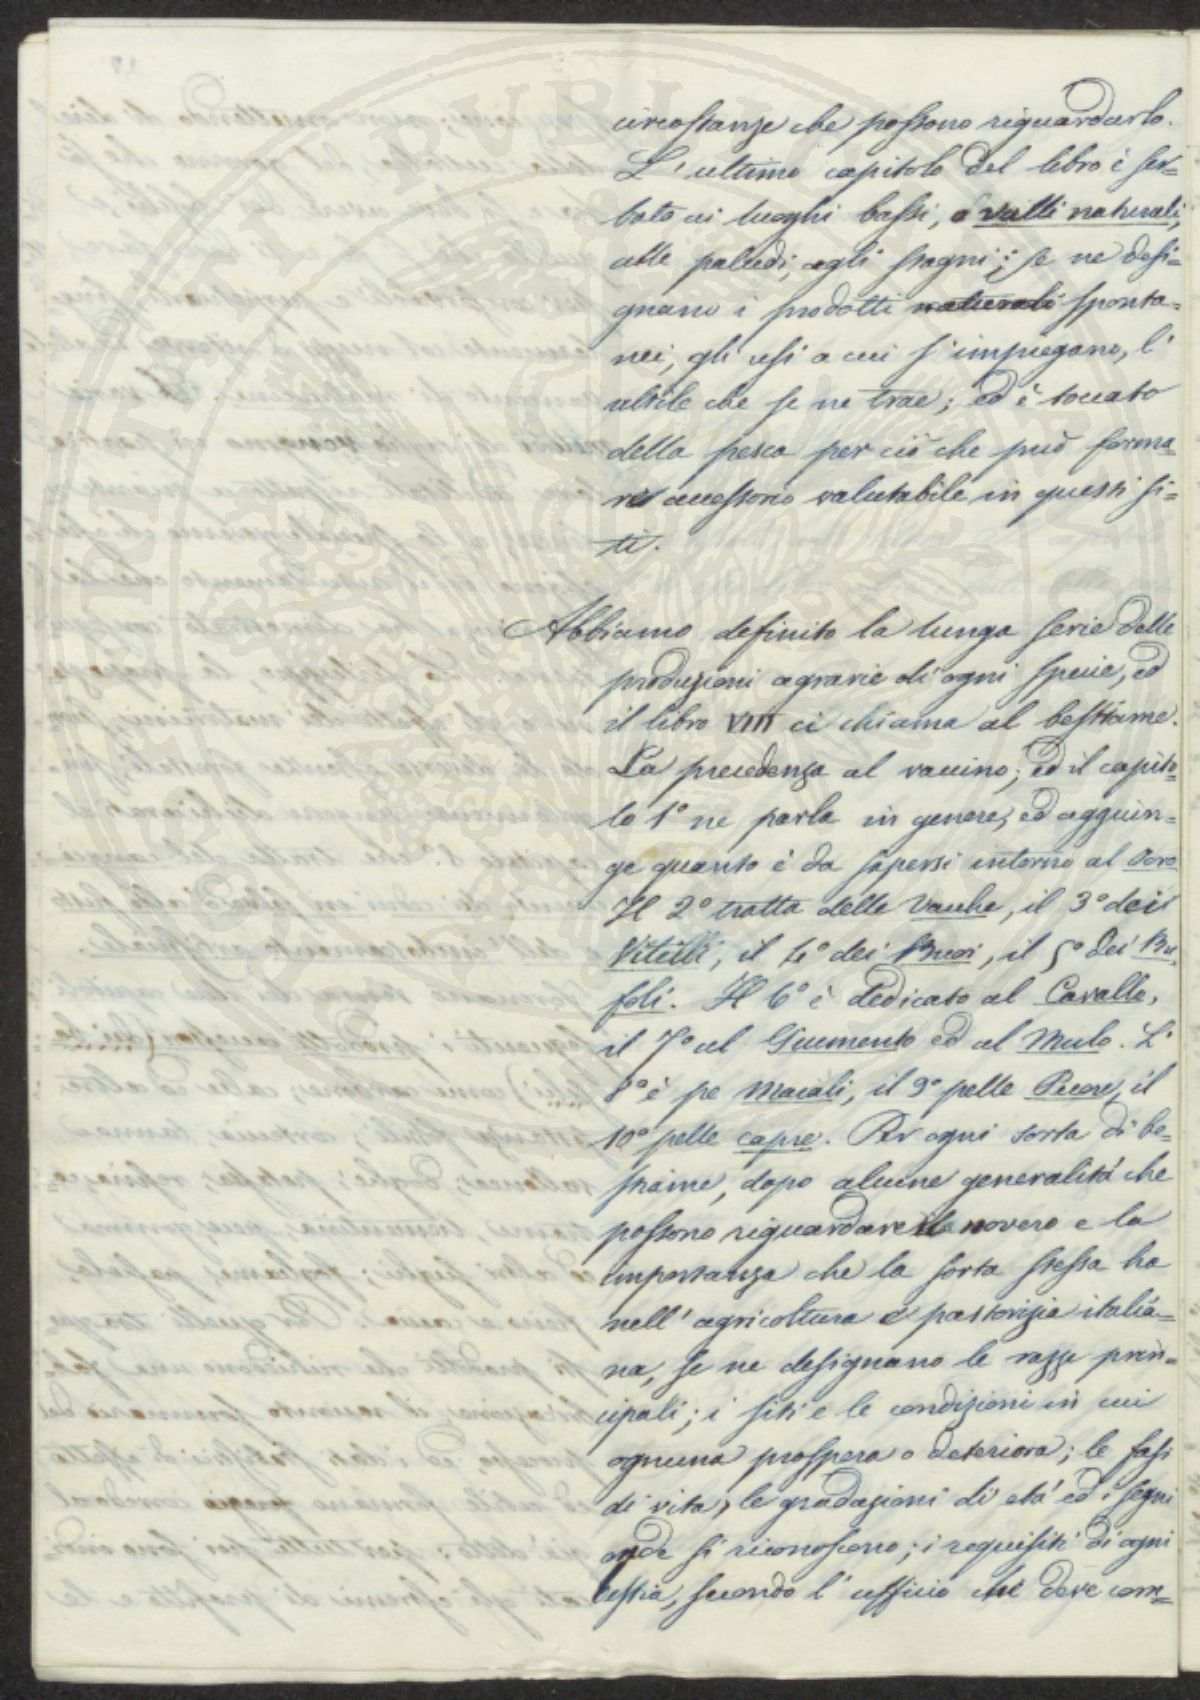 circostanze che possono riguardarlo.
L'ultimo capitolo del libro è ser=
bato ai luoghi bassi, o valli naturali,
alle paludi, agli stagni; se ne desi=
gnano i prodotti naturali sponta=
nei, gli usi a cui s'impiegano, l'
utile che se ne trae; ed è toccato
della pesca per ciò che può forma=
re accessorio valutabile in questi si=
ti.
Abbiamo definito la lunga serie delle
produzioni agrarie di ogni specie, ed
il libro VIII ci chiama al bestiame.
La precedenza al vaccino; ed il capito=
lo 1º ne parla in genere, ed aggiun=
ge quanto è da sapersi intorno al Toro
Il 2º tratta delle Vacche, il 3º dei
Vitelli, il 4º dei Buoi, il 5º dei Bu=
foli. Il 6º è dedicato al Cavallo,
il 7º al Giumento ed al Mulo. L'
8º è pe Maiali, il 9º pelle Pecore, il
10º pelle capre. Per ogni sorta di be=
stiame, dopo alcune generalità che
possono riguardare il novero e la
importanza che la sorta stessa ha
nell'agricoltura e pastorizia italia=
na, se ne designano le razze prin=
cipali; i siti e le condizioni in cui
ognuna prospera o deteriora; le fasi
di vita, le gradazioni di età ed i segni
onde si riconoscono; i requisiti di ogni
bestia, secondo l'ufficio che deve com=